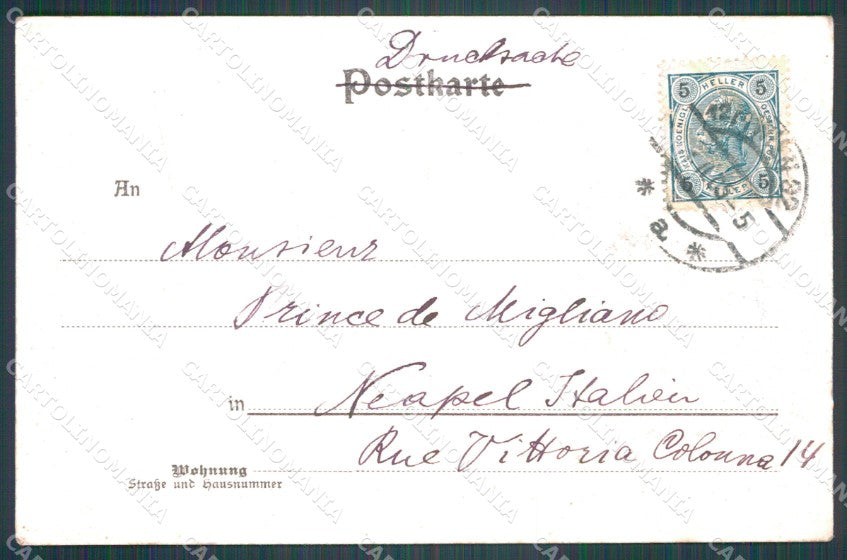 Drucksache
Postkarte
5 HELLER 5
KAIS. KOENIGL.
5 HELLER 5
12/1
5
a
An
Monsieur
Prince de Migliano
in Neapel Italien
Rue Vittoria Colonna 14
Wohnung
Straße und Hausnummer
CARTOLINOMANIA